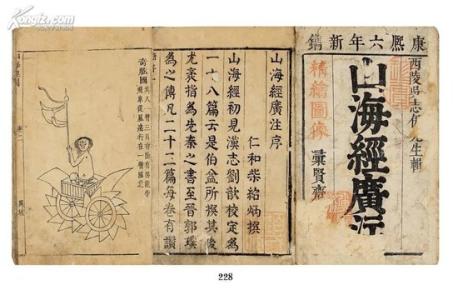 康熙六年新鐫
西陵吳志伊先生輯
山海經廣注
精繪圖像
彙賢齋
山海經廣注序
仁和柴紹炳撰
山海經初見漢志劉歆校定為
一十八篇云是伯益所撰其後
尤袤指為先秦之書至晉郭璞
為之傳凡二十二篇每卷有讚
奇肱國
其人一臂三目有陰有陽能作
飛車從風遠行在一臂國北
228